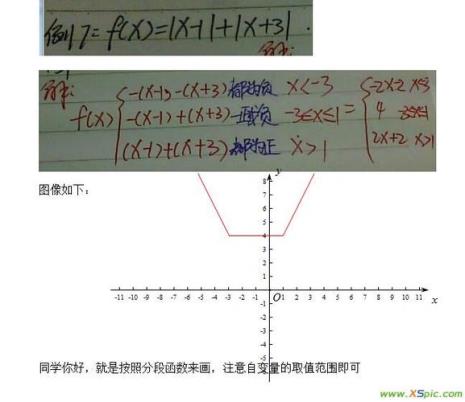 例7= f(x)=|x-1|+|x+3|.
解:
解:
f(x) { -(x-1)-(x+3) 都为负 x<-3 = { -2x-2 x<-3
-(x-1)+(x+3) 一正一负 -3≤x≤1 4 -3≤x≤1
(x-1)+(x+3) 都为正 x>1 2x+2 x>1
图像如下:
y
8
7
6
5
4
3
2
1
-11 -10 -9 -8 -7 -6 -5 -4 -3 -2 -1 O 1 2 3 4 5 6 7 8 9 10 11 x
-1
-2
-3
-4
-5
同学你好,就是按照分段函数来画,注意自变量的取值范围即可
www.XSpic.com